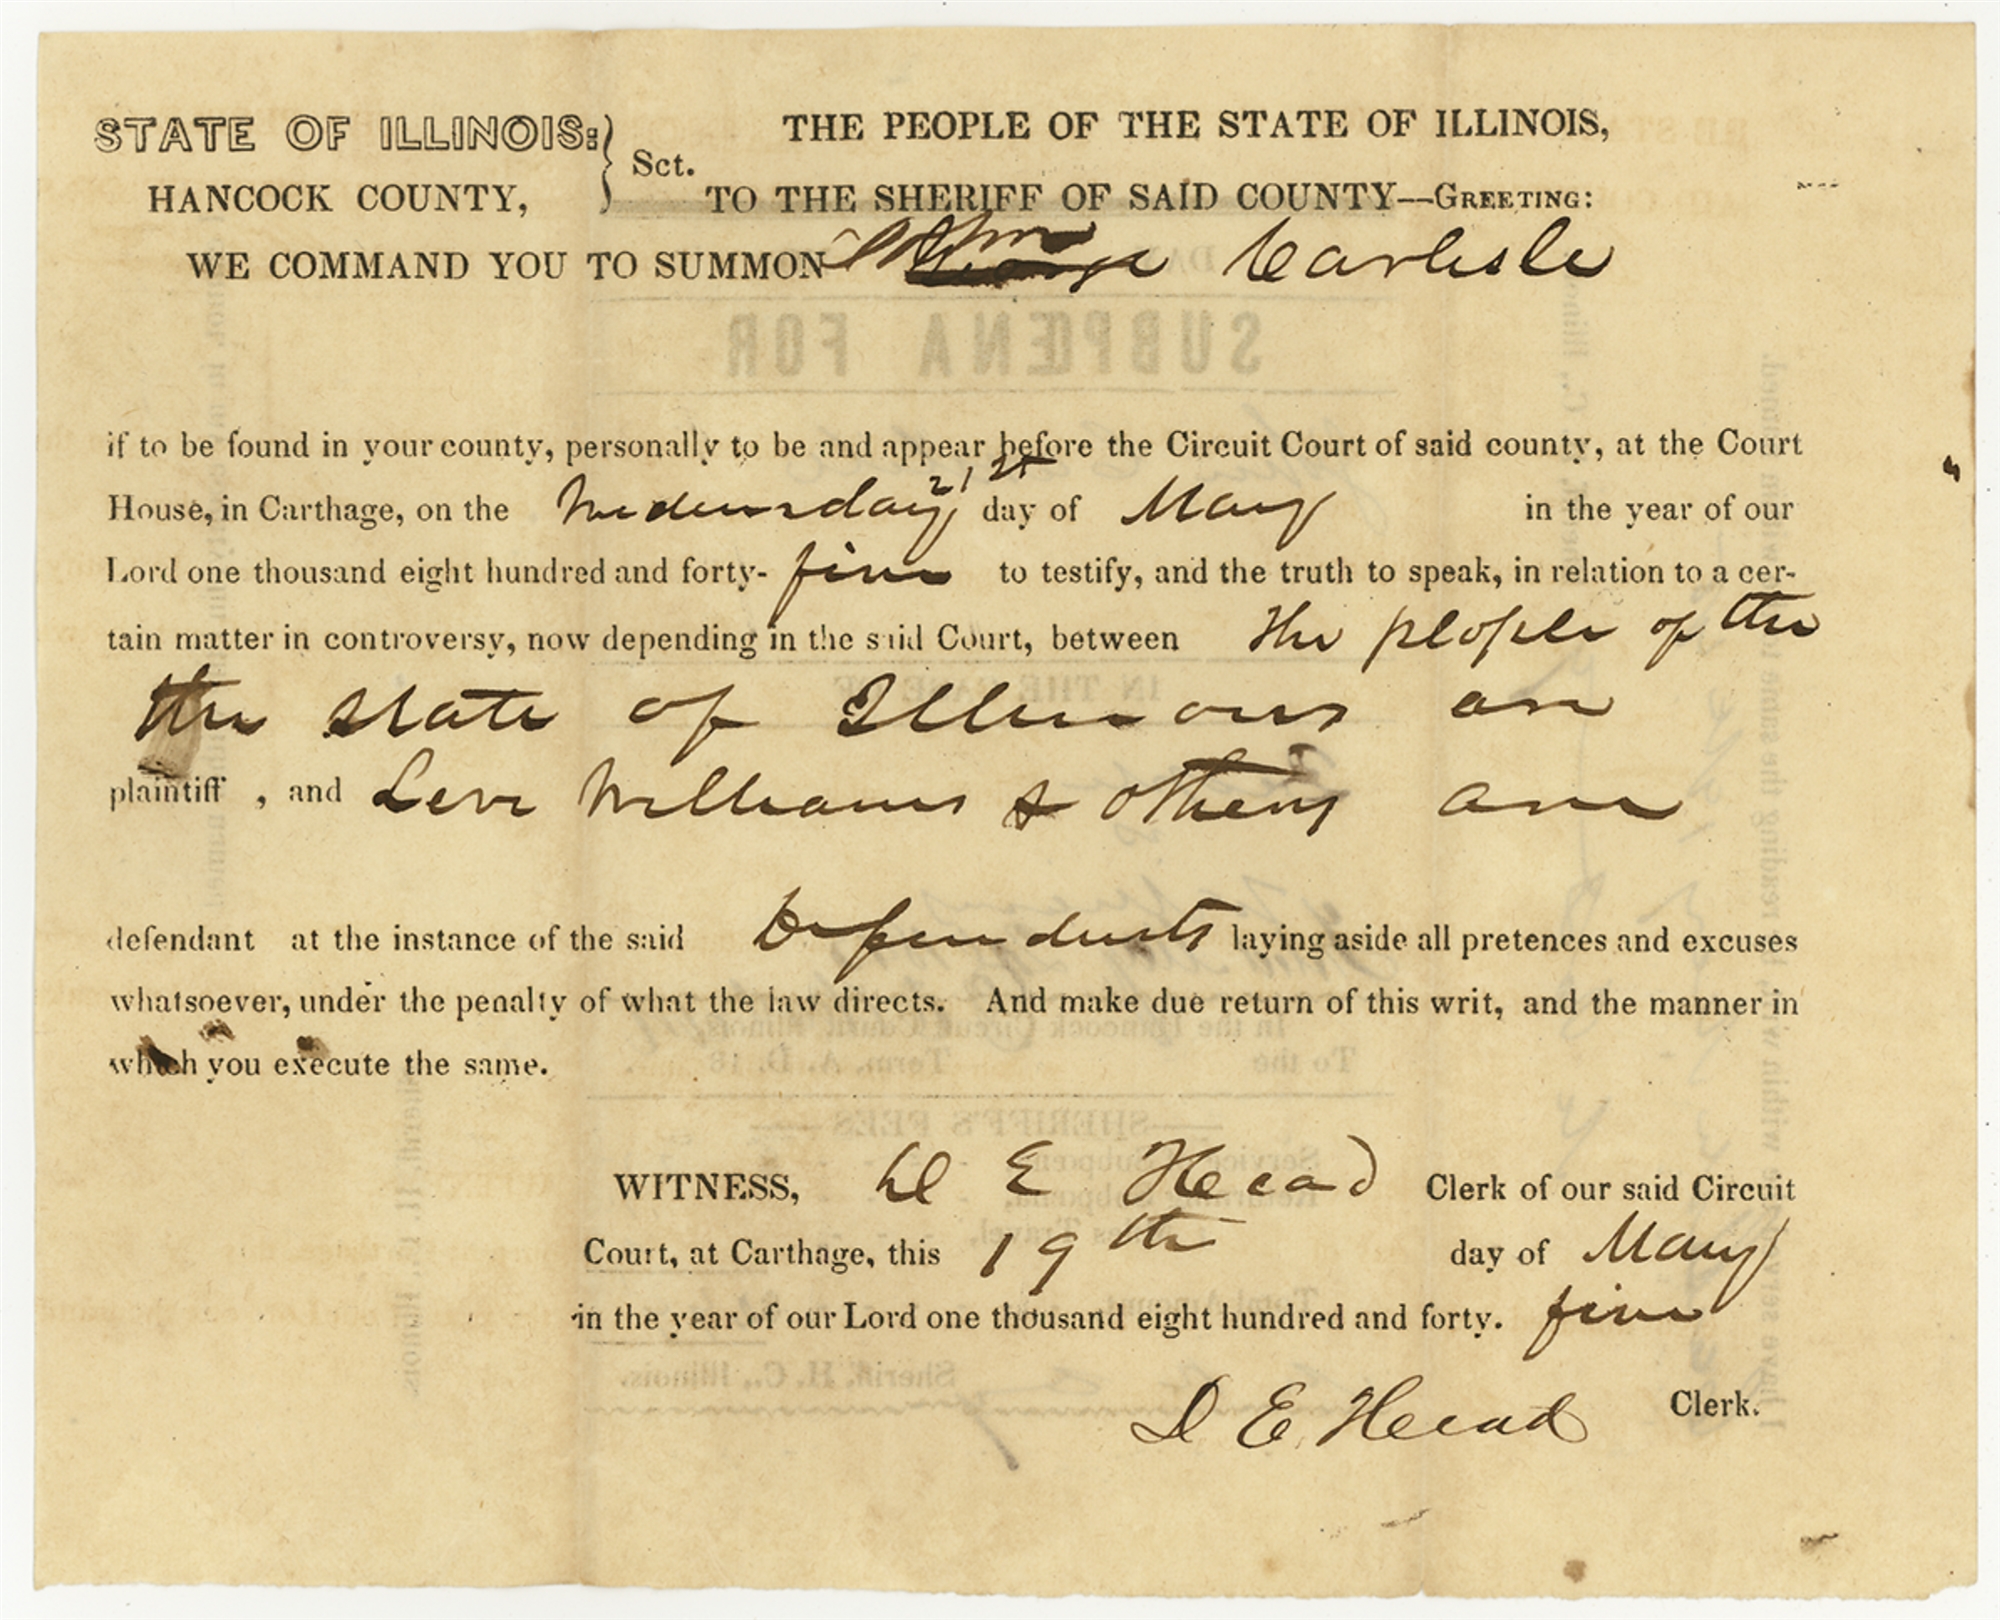 STATE OF ILLINOIS: } Sct. THE PEOPLE OF THE STATE OF ILLINOIS,
HANCOCK COUNTY, TO THE SHERIFF OF SAID COUNTY—GREETING:
WE COMMAND YOU TO SUMMON John George Carlisle
SUBPŒNA FOR
if to be found in your county, personally to be and appear before the Circuit Court of said county, at the Court
House, in Carthage, on the Wedensday 21st day of May in the year of our
Lord one thousand eight hundred and forty- five to testify, and the truth to speak, in relation to a cer-
tain matter in controversy, now depending in the said Court, between the people of the
the State of Illinois are
plaintiff , and Levi Williams & others are
defendant at the instance of the said Defendants laying aside all pretences and excuses
whatsoever, under the penalty of what the law directs. And make due return of this writ, and the manner in
which you execute the same.
WITNESS, D E Head Clerk of our said Circuit
Court, at Carthage, this 19th day of May
in the year of our Lord one thousand eight hundred and forty. five
D E Head Clerk.